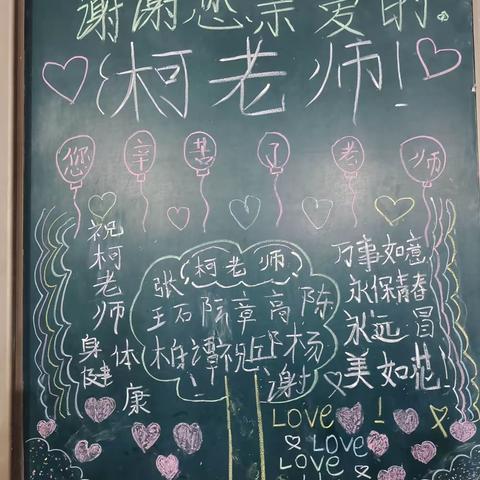 谢谢您亲爱的
柯老师!
您辛苦了老师
祝柯老师
身体健康
柯老师
张
王石阮章高陈
柏谭祝丘邱杨
谢
万事如意
永保青春
永远冒
美如花!
LOVE
!
LOVE
LOVE